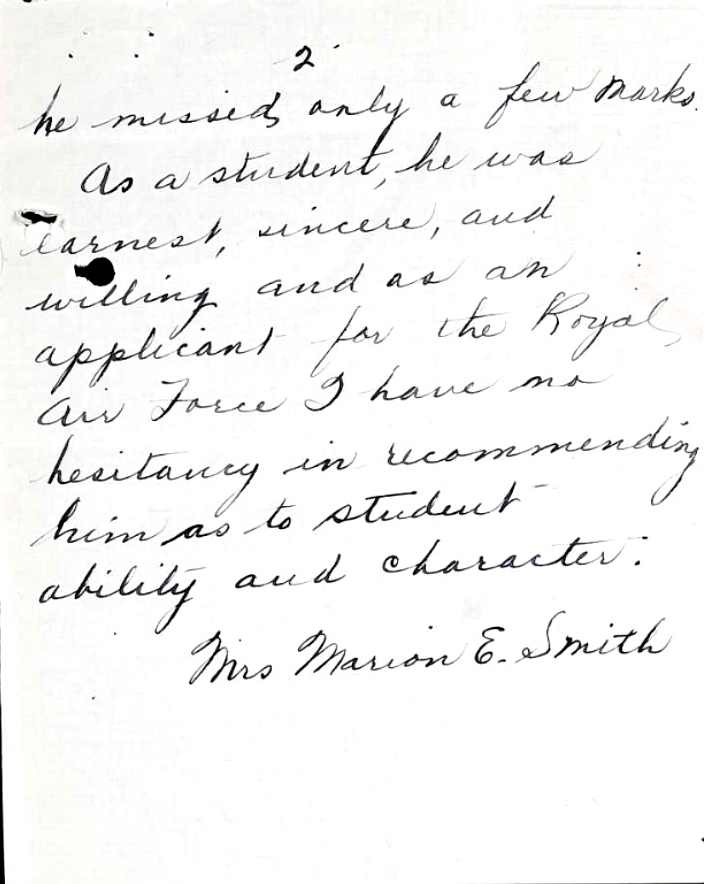 2
he missed only a few marks.
As a student, he was
earnest, sincere, and
willing and as an
applicant for the Royal
Air Force I have no
hesitancy in recommending
him as to student
ability and character.
Mrs Marion E. Smith